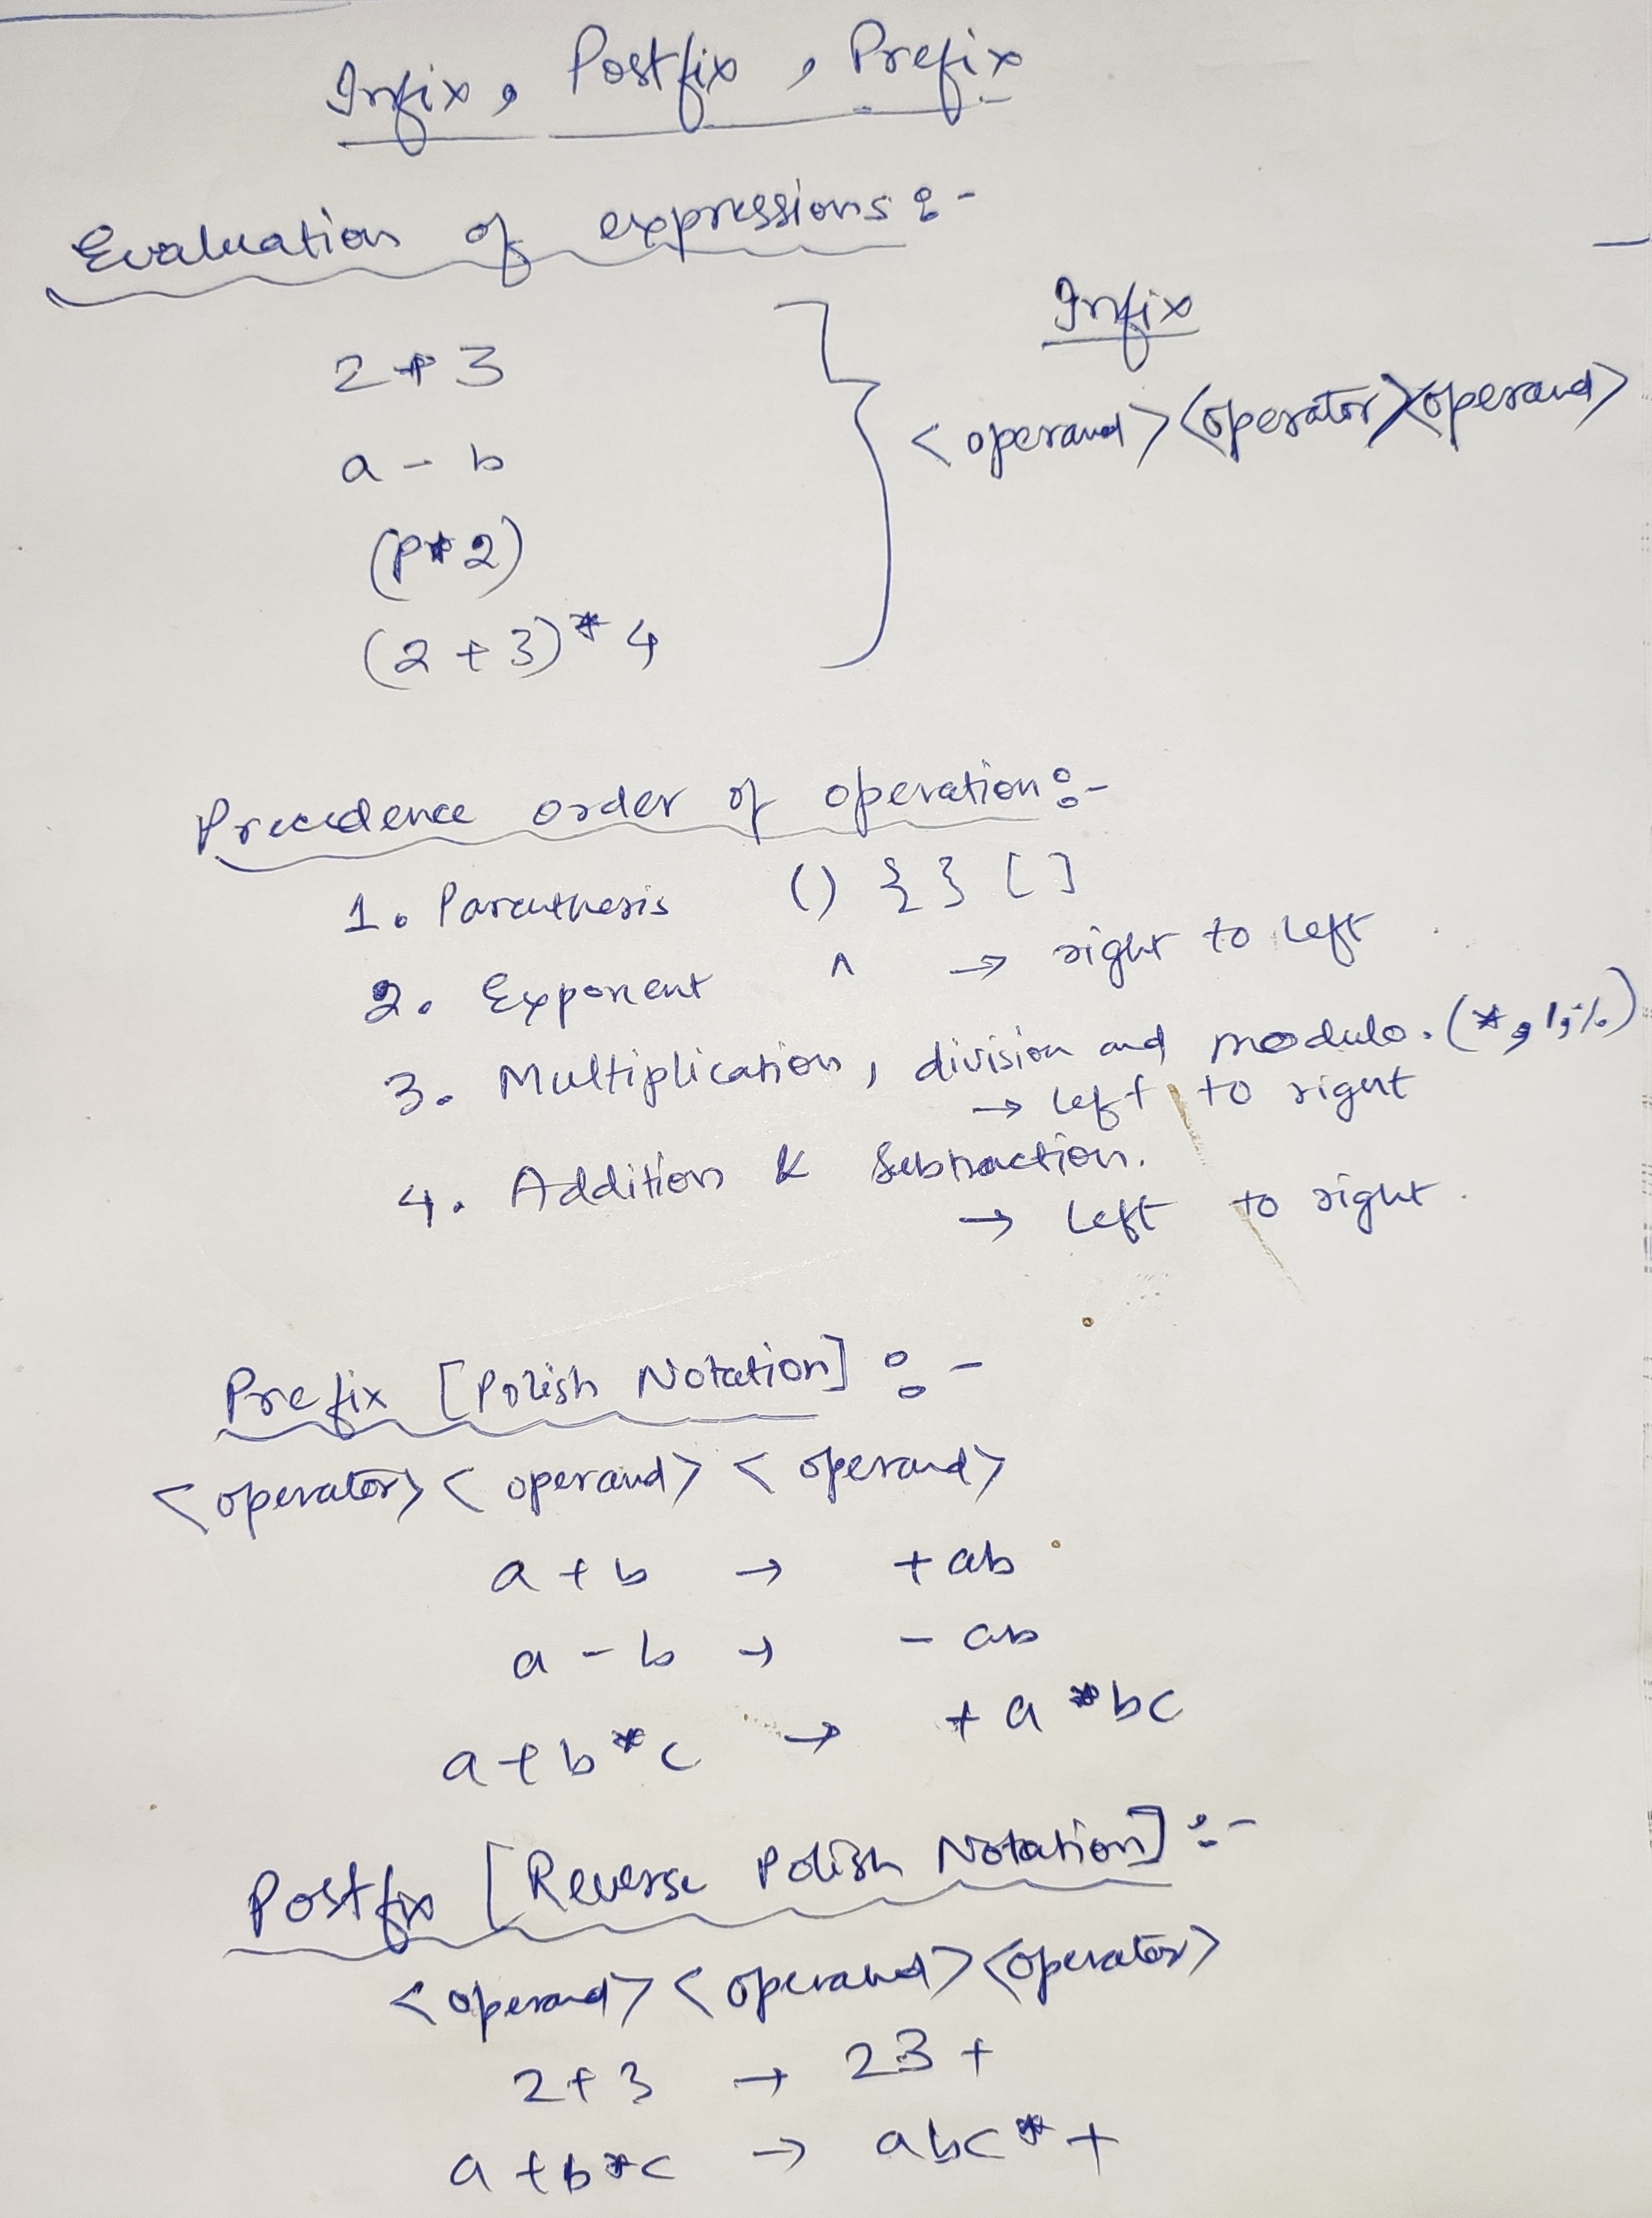 Infix, Postfix, Prefix
Evaluation of expressions :-
2 + 3
a - b
(p*2)
(2 + 3) * 4
Infix
<operand> <operator> <operand>
Precedence order of operation :-
1. Paranthesis () { } [ ]
2. Exponent ^ → right to left
3. Multiplication, division and modulo. (*, /, %)
→ left to right
4. Addition & Subtraction.
→ left to right.
Prefix [Polish Notation] :-
<operator> <operand> <operand>
a + b → + ab
a - b → - ab
a + b * c → + a * bc
Postfix [Reverse Polish Notation] :-
<operand> <operand> <operator>
2 + 3 → 23 +
a + b * c → abc * +